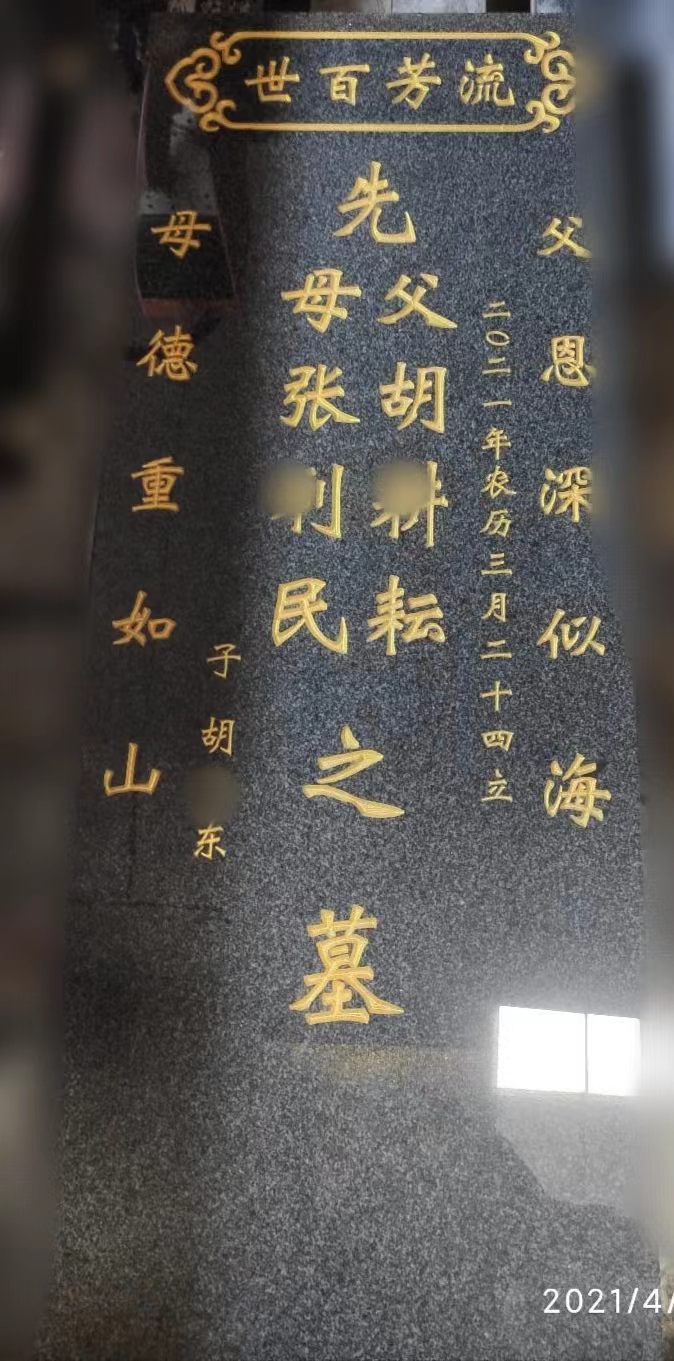 流芳百世
父恩深似海
二〇二一年农历三月二十四立
先
父胡耘
母张利民
之墓
子胡东
母德重如山
2021/4/